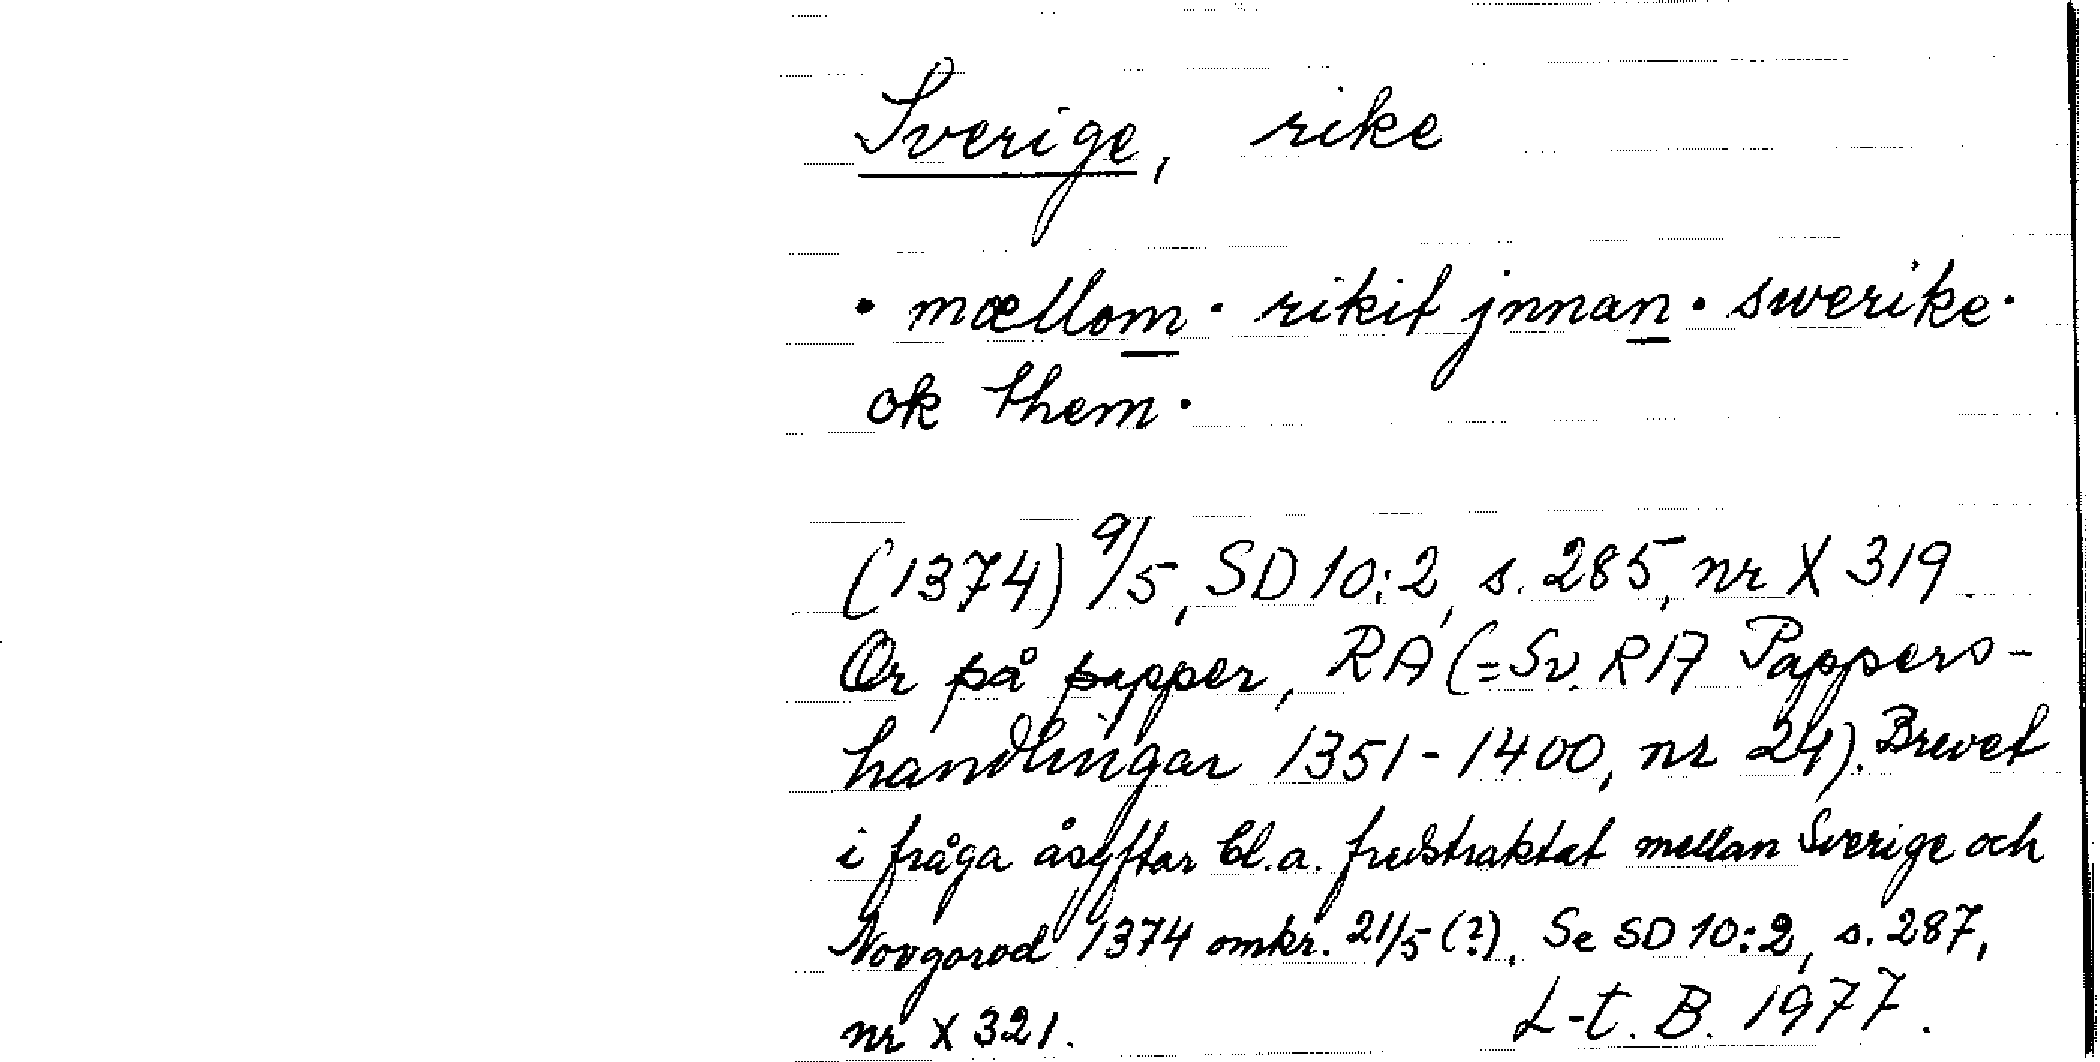 Sverige, rike
· mællom · rikit jnnan · swerike ·
ok them ·
(1374) 9/5, SD 10:2, s. 285, nr X 319
Or på papper, RA (=Sv. RA Pappers-
handlingar 1351-1400, nr 24). Brevet
i fråga åsyftar bl.a. fredstraktat mellan Sverige och
Novgorod 1374 omkr. 21/5 (?). Se SD 10:2, s. 287,
nr X 321.
L-t. B. 1977.